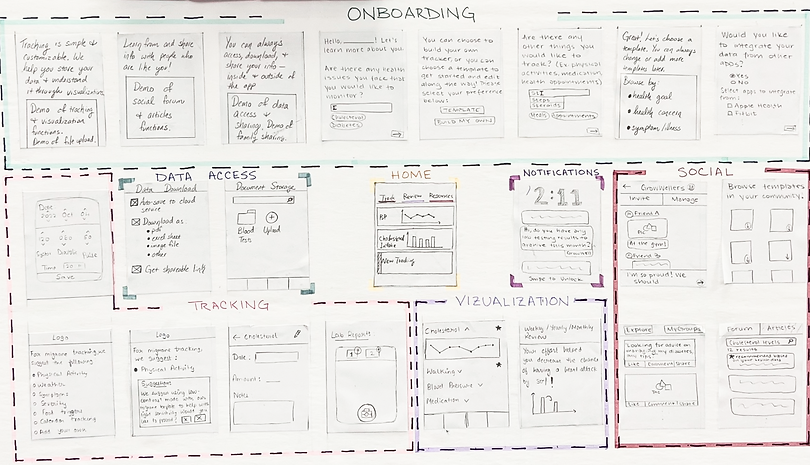 ONBOARDING
Tracking is simple &
customizable. We
help you store your
data & understand
it through visualization
Demo of tracking
& visualization
functions.
Demo of file upload.
Learn from and share
info with people who
are like you!
Demo of
social forums
& articles
functions.
You can always
access, download, &
share your info -
inside & outside of
the app
Demo of data
access &
sharing. Demo of
family sharing.
Hello, ______! Let's
learn more about you.
Are there any health
issues you face that
you would like to
monitor?
Cholesterol
Diabetes
You can choose to
build your own
tracker, or you can
choose a template to
get started and edit
along the way! These
select your preference
below:
TEMPLATE
BUILD MY OWN
Are there any
other things you
would like to
track? (Ex. physical
activities, medication,
health appointments)
Sl
Sleep
Meds
Appointments
Great! Let's choose a
template. You can always
change or add more
templates later.
Browse by:
• health goal
• health concern
• symptom/illness
Would you like
to integrate your
data from other
apps?
Yes
No
Select apps to integrate
from:
Apple Health
Fitbit
DATA ACCESS
HOME
NOTIFICATIONS
SOCIAL
Date
Time
Save
Data Download
Auto-save to cloud
service
Download as:
• pdf
• excel share
• image file
• other
Get shareable link
Document Storage
Blood
Test
Upload
Track
Review
Resources
BP
Cholesterol
Intake
New Tracking
2:11
Hi, do you have any
Swipe to Unlock
← Growellers
Invite
Manage
Friend A
At the gym!
Friend B
I'm so proud! We
should
Browse templates
in your community.
TRACKING
VIZUALIZATION
Logo
For migraine tracking, we
suggest the following
Physical Activity
Weather
Symptoms
Severity
Food triggers
Calendar Tracking
Add your own
Logo
For migraine tracking,
we suggest:
• Physical Activity
Suggestions
← Cholesterol
Date:
Amount:
Notes
Lab Reports
Cholesterol
Walking
Blood Pressure
Medication
Weekly/Monthly/Yearly
Review
Your effort helped
you decrease the chances
of having a heart attack
by 50%!
Explore
My Groups
Looking for advice on
Like | Comment | Share
Pic
Like | Comment | Share
Forum
Articles
Cholesterol levels